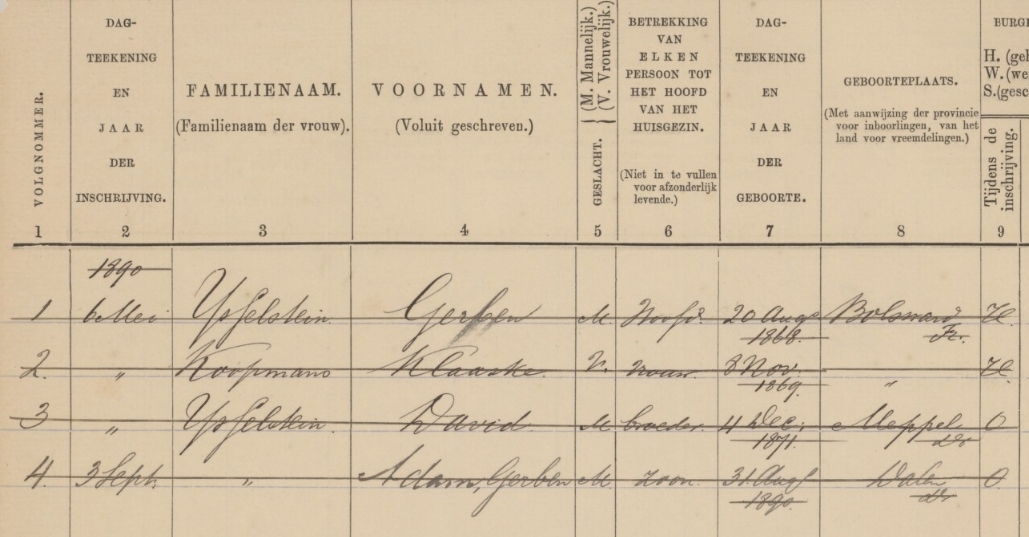 VOLGNOMMER.
DAG-
TEEKENING
EN
JAAR
DER
INSCHRIJVING.
FAMILIENAAM.
(Familienaam der vrouw).
VOORNAMEN.
(Voluit geschreven.)
GESLACHT. { (M. Mannelijk.) (V. Vrouwelijk.)
BETREKKING
VAN
ELKEN
PERSOON TOT
HET HOOFD
VAN HET
HUISGEZIN.
(Niet in te vullen
voor afzonderlijk
levende.)
DAG-
TEEKENING
EN
JAAR
DER
GEBOORTE.
GEBOORTEPLAATS.
(Met aanwijzing der provincie
voor inboorlingen, van het
land voor vreemdelingen.)
BURGE
H. (geh
W. (we
S. (gesc
Tijdens de
inschrijving.
1 2 3 4 5 6 7 8 9
1890
1 6 Mei Ysselstein Gerben M. Hoofd. 20 Aug. Bolsward H.
1868. Fr.
2. " Koopmans Klaaske. V. vrouw. 8 Nov. " H.
1869.
3 " Ysselstein. David. M. broeder. 4 Dec. Meppel O
1871. Dr
4. 3 Sept. " Adam, Gerben M. zoon. 31 Aug Dalen O.
1890. Dr